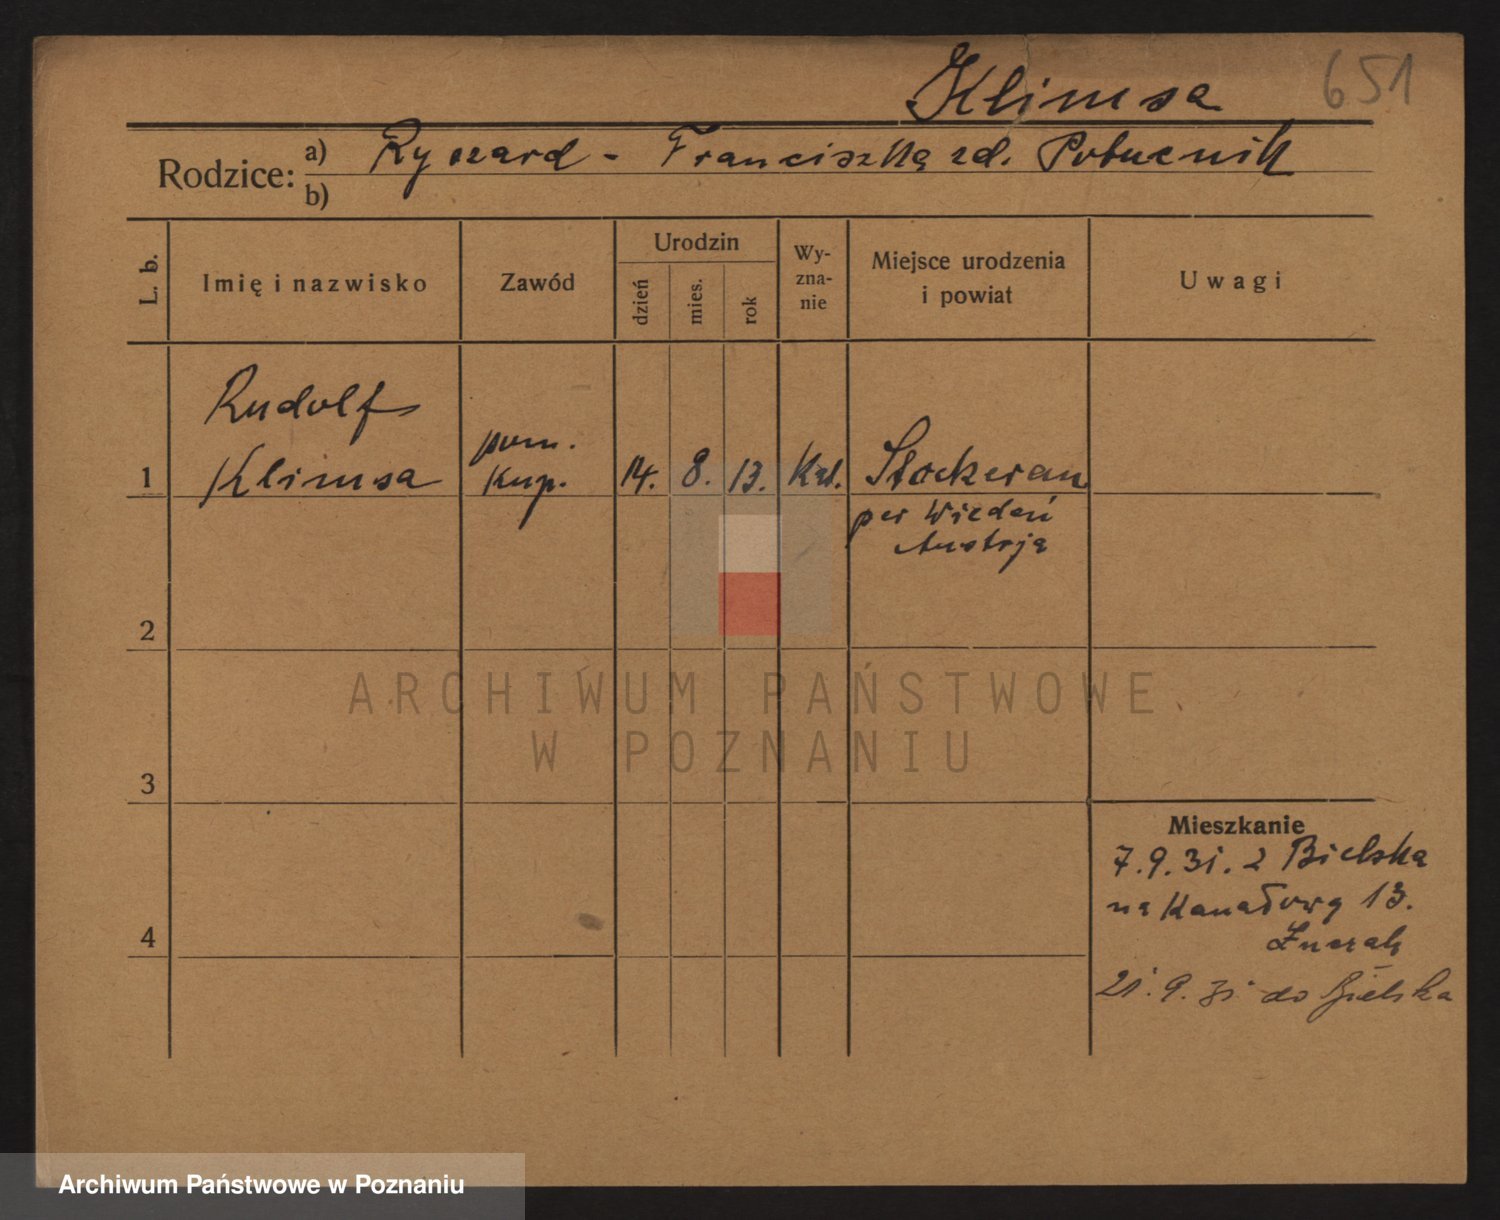 651
Klimsa
Rodzice: a) Ryszard - Franciszka zd. Potucznik
b)
L. b. Imię i nazwisko Zawód Urodzin dzień mies. rok Wy-zna-nie Miejsce urodzenia i powiat Uwagi
Rudolf
1 Klimsa pom. kup. 14. 8. 13. Kat. Stockerau
per Wiedeń
Austrja
2
3
4
Mieszkanie
7.9.31. z Bielska
na Kanałową 13.
21.9.31 do Bielska
ARCHIWUM PAŃSTWOWE
W POZNANIU
Archiwum Państwowe w Poznaniu